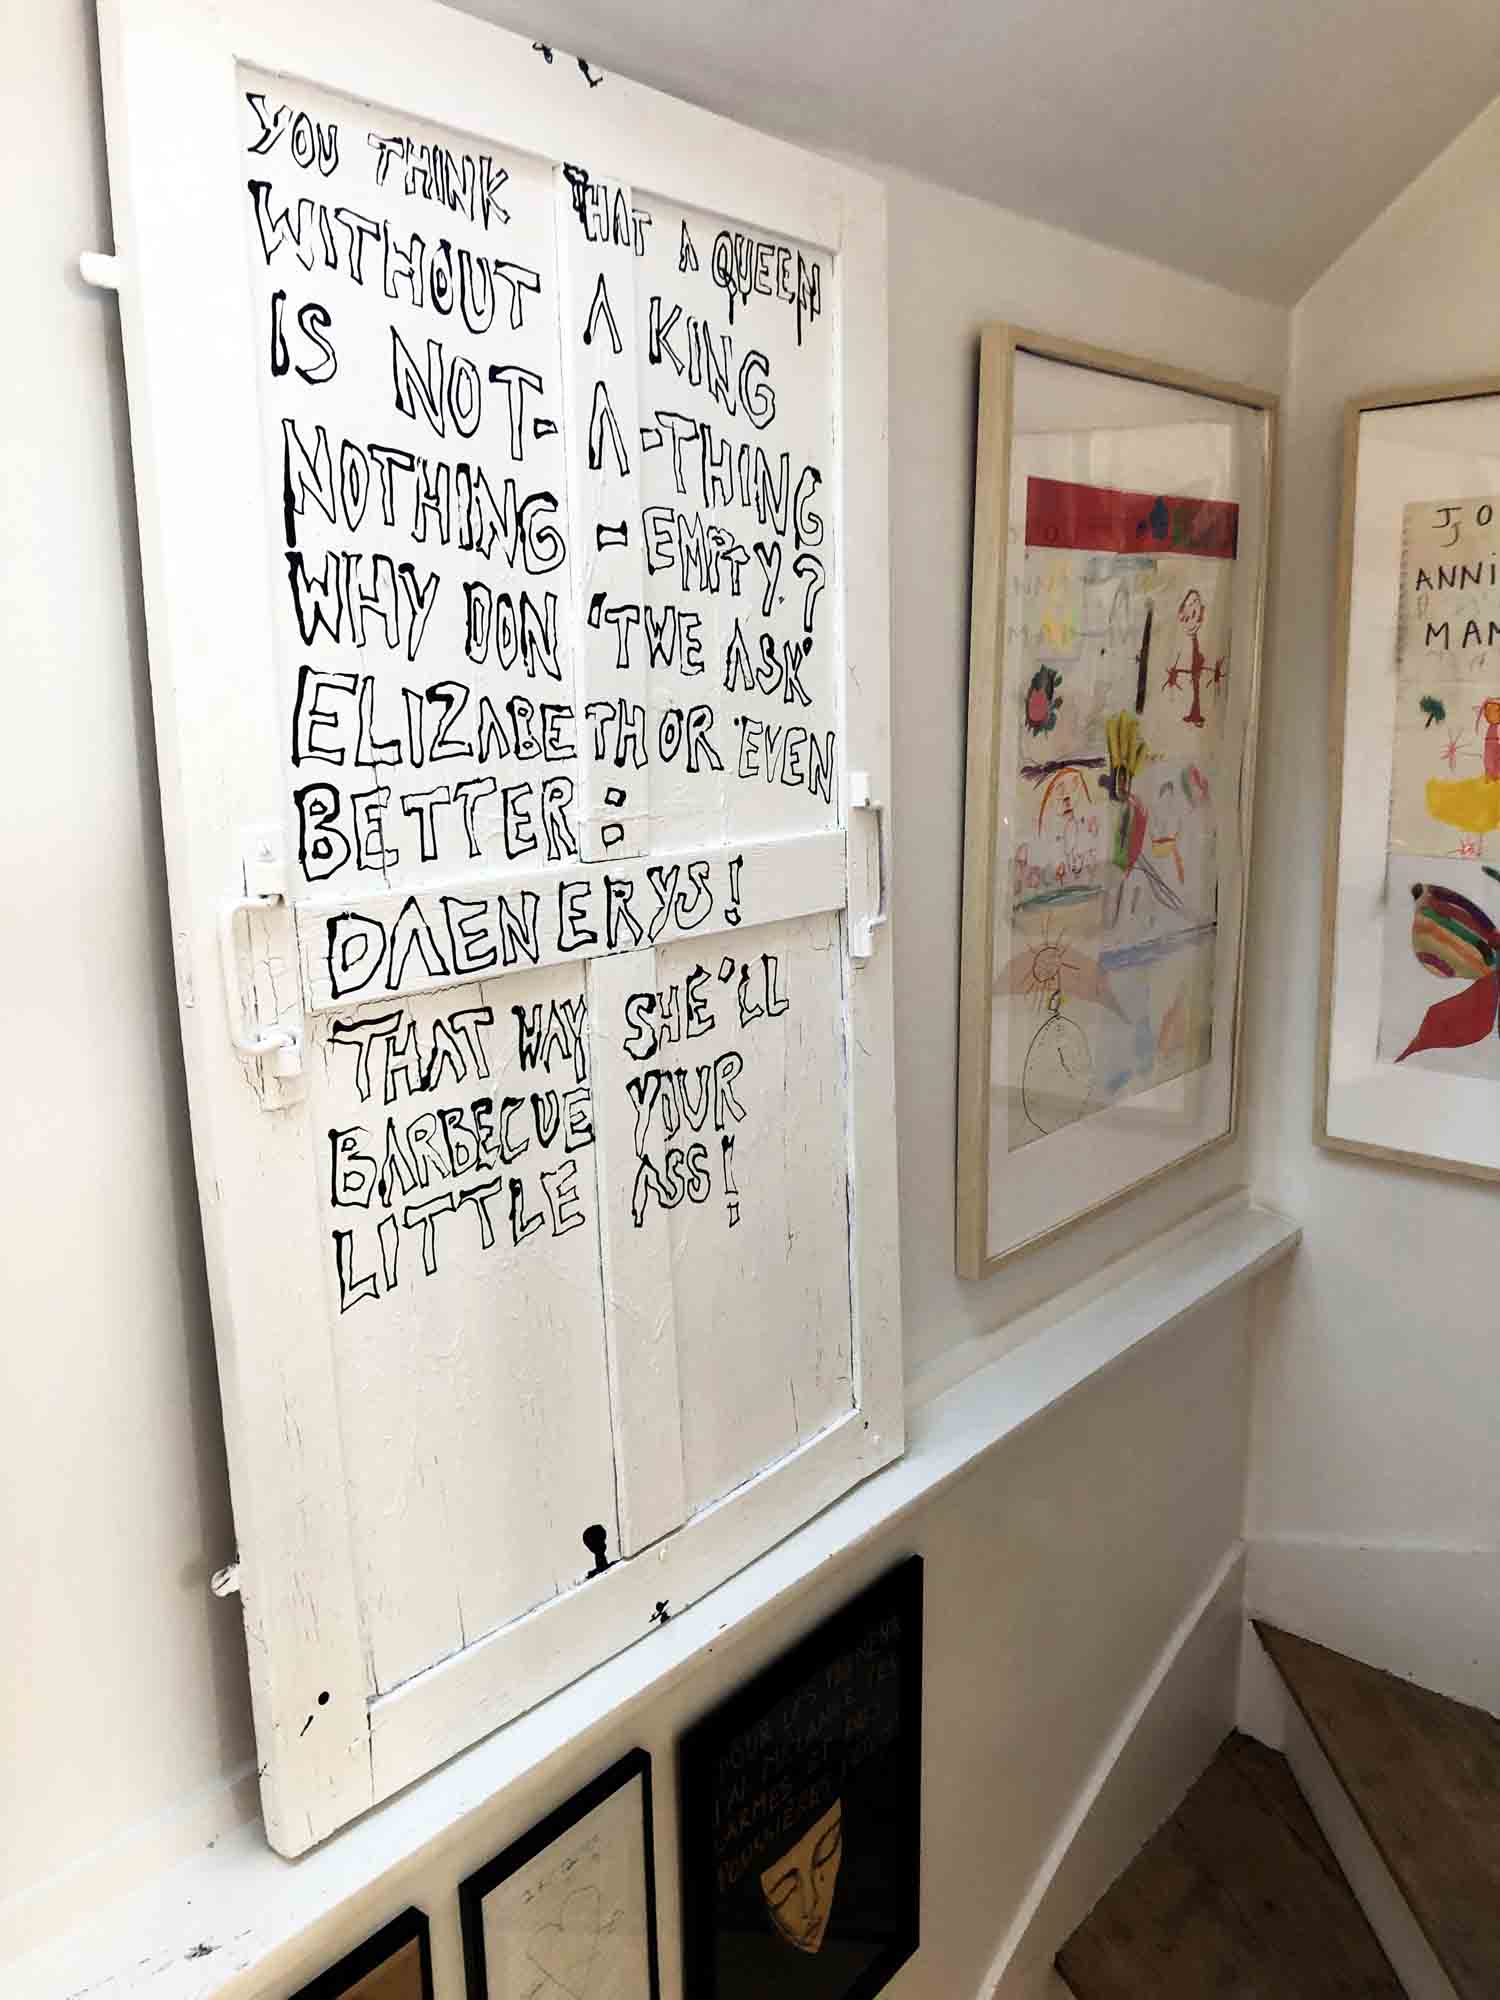 YOU THINK THAT A QUEEN
WITHOUT A KING
IS NOT- A -THING
NOTHING - EMPTY?
WHY DON 'T WE ASK
ELIZABETH OR EVEN
BETTER :
DAENERYS!
THAT WAY SHE'LL
BARBECUE YOUR
LITTLE ASS!
JO
ANNI
MAM
POUR LES
LARMES ET DES
POUSSIÈRES